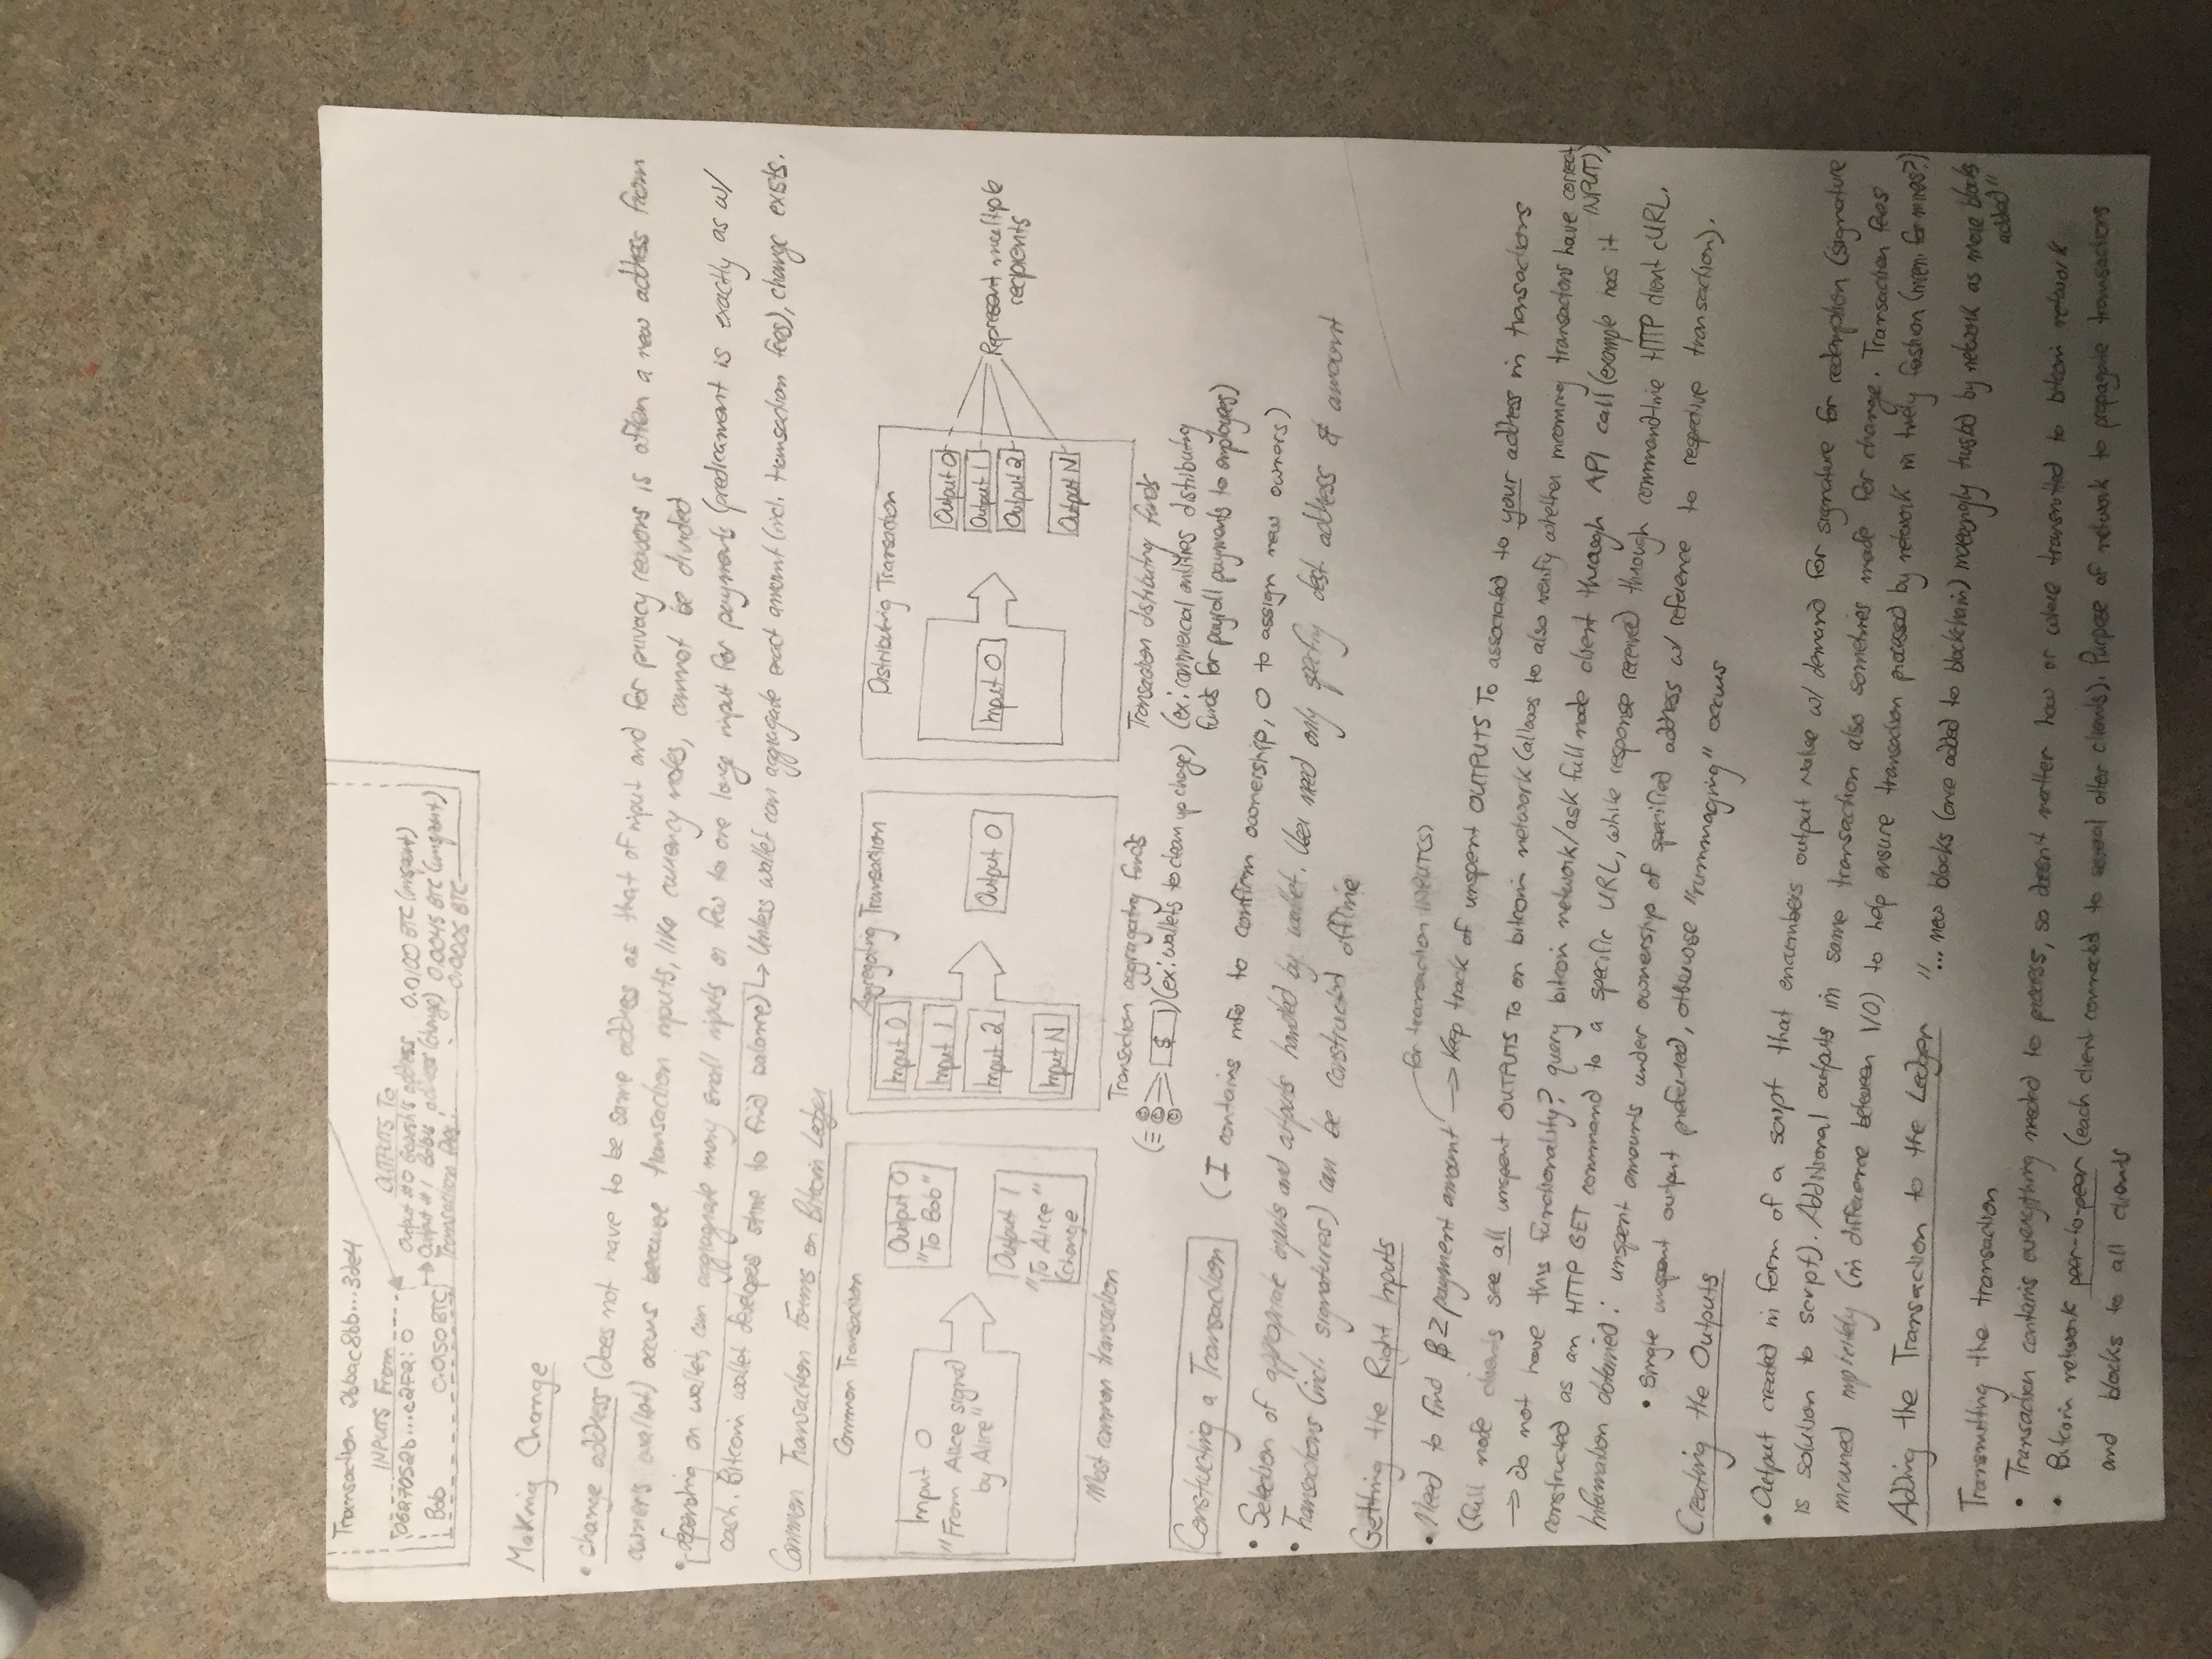 Transaction 2bbac8bb...3de4
INPUTS From
OUTPUTS To
0627052b...c2fa:0
Output #0 Gopesh's address 0.0100 BTC (unspent)
Bob 0.0150 BTC
Output #1 Bob's address (change) 0.0045 BTC (unspent)
Transaction Fee: 0.0005 BTC
Making Change
• change address (does not have to be same address as that of input and for privacy reasons is often a new address from
owner's wallet) occurs because transaction inputs, like currency notes, cannot be divided
• depending on wallet, can aggregate many small inputs or few to one large input for payment (predicament is exactly as w/
cash. Bitcoin wallet develops to find balance) ↳ Unless wallet can aggregate exact amount (incl. transaction fees), change exists.
Common Transaction Forms on Bitcoin Ledger
Common Transaction
Input 0
"From Alice signed
by Alice"
Output 0
"To Bob"
Output 1
"To Alice"
(change
Most common transaction
Aggregating Transaction
Input 0
Input 1
Input 2
Input N
Output 0
Transaction aggregating funds
( $ ) (ex: wallets to clean up change)
Distributing Transaction
Input 0
Output 0
Output 1
Output 2
Output N
Represent multiple
recipients
Transaction distributing funds
(ex: commercial entities distributing
funds for payroll payments to employees)
Constructing a Transaction (I contains info to confirm ownership, O to assign new owners)
• Selection of appropriate inputs and outputs handled by wallet. User need only specify dest address & amount
• Transactions (incl. signatures) can be constructed offline
Getting the Right Inputs
• Need to find ₿ ≥ payment amount → Keep track of unspent OUTPUTS To associated to your address in transactions
for transaction INPUT(s)
(full node clients see all unspent OUTPUTS To on bitcoin network (allows to also verify whether incoming transactions have correct
INPUT)
→ do not have this functionality? query bitcoin network/ask full node client through API call (example has it
constructed as an HTTP GET command to a specific URL, while response received through commandline HTTP client cURL.
Information obtained: unspent amounts under ownership of specified address w/ reference to respective transaction).
• Single unspent output preferred, otherwise "rummaging" occurs
Creating the Outputs
• Output created in form of a script that encumbers output value w/ demand for signature for redemption (signature
is solution to script). Additional outputs in same transaction also sometimes made for change. Transaction fees
incurred implicitly (in difference between I/O) to help ensure transaction processed by network in timely fashion (incent. for miners?)
Adding the Transaction to the Ledger "... new blocks (once added to blockchain) increasingly trusted by network as more blocks
added"
Transmitting the transaction
• Transaction contains everything needed to process, so doesn't matter how or where transmitted to bitcoin network
• Bitcoin network peer-to-peer (each client connected to several other clients). Purpose of network to propagate transactions
and blocks to all clients